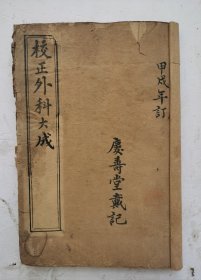 甲戌年訂
慶壽堂戴記
校正外科大成